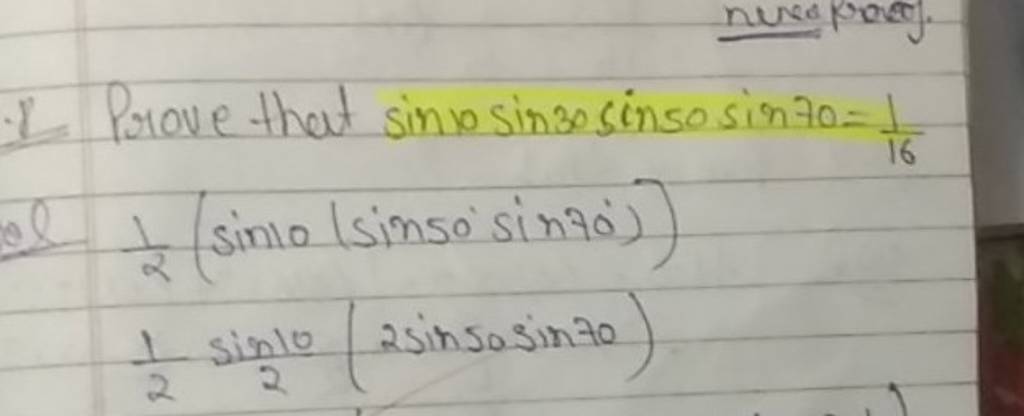 Prove that sin10 sin30 sin50 sin70 = 1/16
1/2 (sin10 (sin50° sin70°))
1/2 sin10/2 (2sin50 sin70)